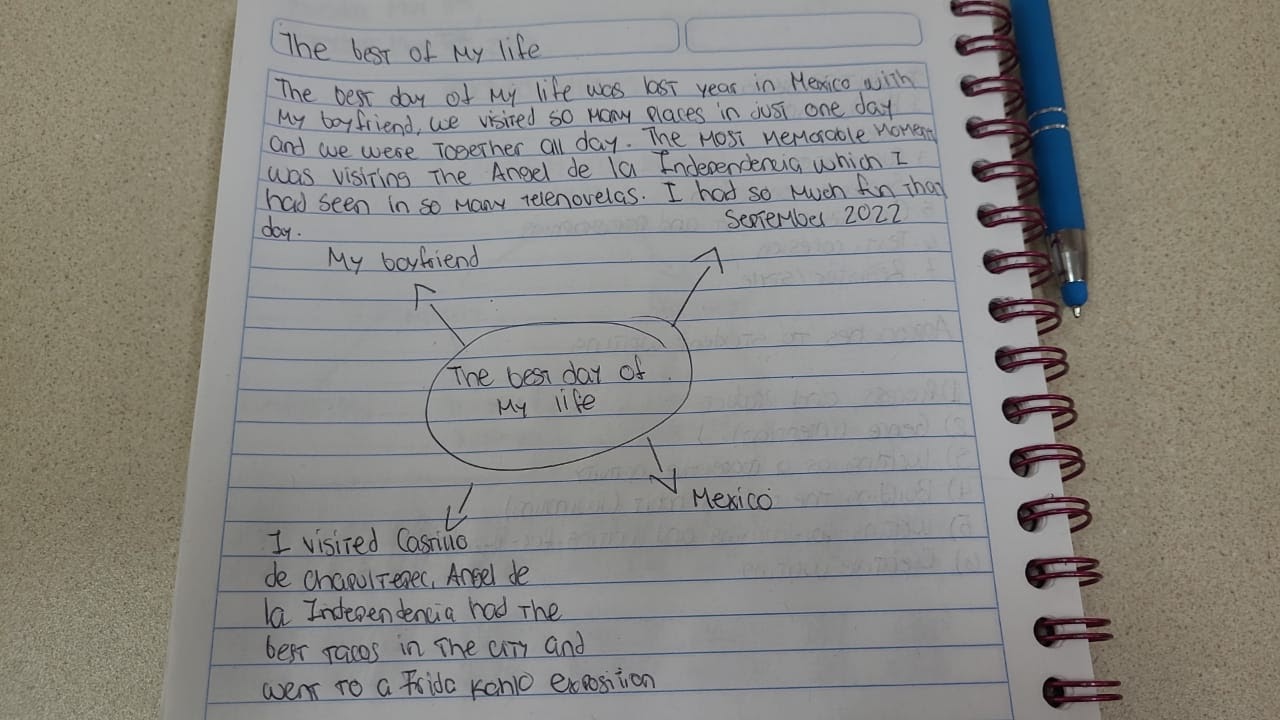 The best of My life
The best day of My life was last year in Mexico with
My boyfriend, we visited so many places in just one day
and we were together all day. The most memorable moment
was visiting the Angel de la Independencia which I
had seen in so many telenovelas. I had so much fun that
day.
September 2022
My boyfriend
The best day of
My life
Mexico
I visited Castillo
de Chapultepec, Angel de
la Independencia had the
best tacos in the city and
went to a Frida Kahlo exposition